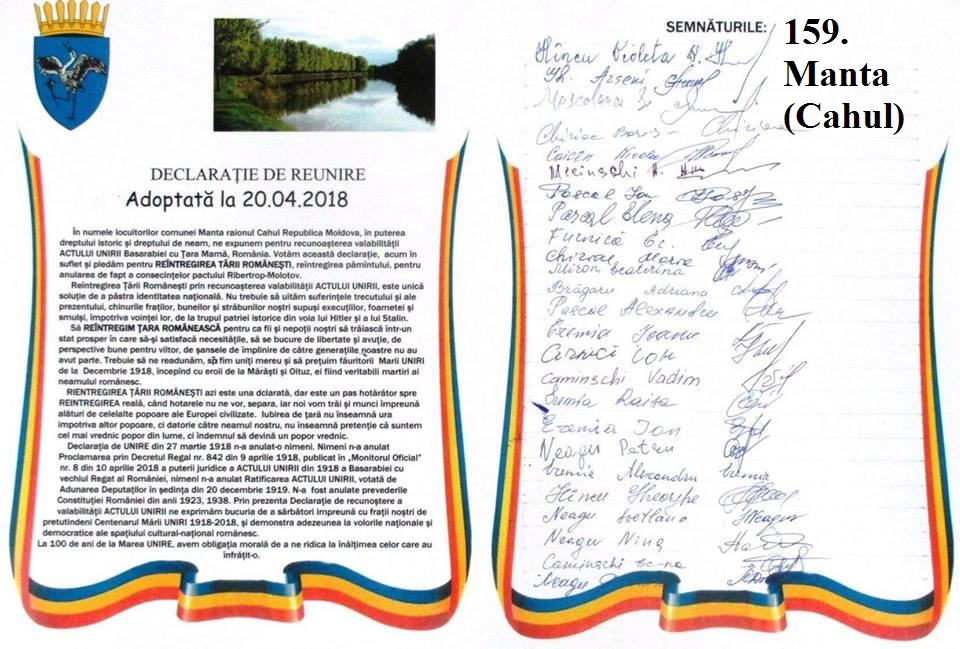 DECLARAȚIE DE REUNIRE
Adoptată la 20.04.2018
În numele locuitorilor comunei Manta raionul Cahul Republica Moldova, în puterea
dreptului istoric și dreptului de neam, ne expunem pentru recunoașterea valabilității
ACTULUI UNIRII Basarabiei cu Țara Mamă, România. Votăm această declarație, acum în
suflet și pledăm pentru REÎNTREGIREA TĂRII ROMÂNEȘTI, reîntregirea pămîntului, pentru
anularea de fapt a consecințelor pactului Ribertrop-Molotov.
Reîntregirea Țării Românești prin recunoașterea valabilității ACTULUI UNIRII, este unică
soluție de a păstra identitatea națională. Nu trebuie să uităm suferințele trecutului și ale
prezentului, chinurile fraților, buneilor și străbunilor noștri supuși execuțiilor, foametei și
smulși, împotriva voinței lor, de la trupul patriei istorice din voia lui Hitler și a lui Stalin.
Să REÎNTREGIM ȚARA ROMÂNEASCĂ pentru ca fii și nepoții noștri să trăiască într-un
stat prosper în care să-și satisfacă necesitățile, să se bucure de libertate și avuție, de
perspective bune pentru viitor, de șansele de împlinire de către generațiile noastre nu au
avut parte. Trebuie să ne readunăm, să fim uniți mereu și să prețuim făuritorii Marii UNIRI
de la Decembrie 1918, începînd cu eroii de la Mărăști și Oituz, ei fiind veritabili martiri ai
neamului românesc.
RIENTREGIREA ȚĂRII ROMÂNEȘTI azi este una dclarată, dar este un pas hotărâtor spre
REINTREGIREA reală, când hotarele nu ne vor, separa, iar noi vom trăi și munci împreună
alături de celelalte popoare ale Europei civilizate. Iubirea de țară nu înseamnă ura
impotriva altor popoare, ci datorie către neamul nostru, nu înseamnă pretenția că suntem
cel mai vrednic popor din lume, ci îndemnul să devină un popor vrednic.
Declarația de UNIRE din 27 martie 1918 n-a anulat-o nimeni. Nimeni n-a anulat
Proclamarea prin Decretul Regal nr. 842 din 9 aprilie 1918, publicat în „Monitorul Oficial"
nr. 8 din 10 aprilie 2018 a puterii juridice a ACTULUI UNIRII din 1918 a Basarabiei cu
vechiul Regat al României, nimeni n-a anulat Ratificarea ACTULUI UNIRII, votată de
Adunarea Deputaților în ședința din 20 decembrie 1919. N-a fost anulate prevederile
Constituției României din anii 1923, 1938. Prin prezenta Declarație de recunoștere a
valabilității ACTULUI UNIRII ne exprimăm bucuria de a sărbători impreună cu frații noștri de
pretutindeni Centenarul Mării UNIRI 1918-2018, și demonstra adezeunea la volorile naționale și
democratice ale spațiului cultural-național românesc.
La 100 de ani de la Marea UNIRE, avem obligația morală de a ne ridica la înălțimea celor care au
înfrățit-o.
SEMNĂTURILE:
159.
Manta
(Cahul)
Hîncu Violeta
Gh. Arseni
Chiriac Boris
Nicolae
Pascal Ion
Pascal Elena
Furnică Ec.
Chiriac Maria
Miron Ecaterina
Brăgaru Adriana
Pascal Alexandru
Eremia Ioana
Cîrnici Ion
Caminschi Vadim
Eremia Raisa
Eremia Ion
Neagu Petru
Eremia Alexandru
Hîncu Gheorghe
Neagu Svetlana
Neagu Nina
Caminschi Ec-na
Neagu